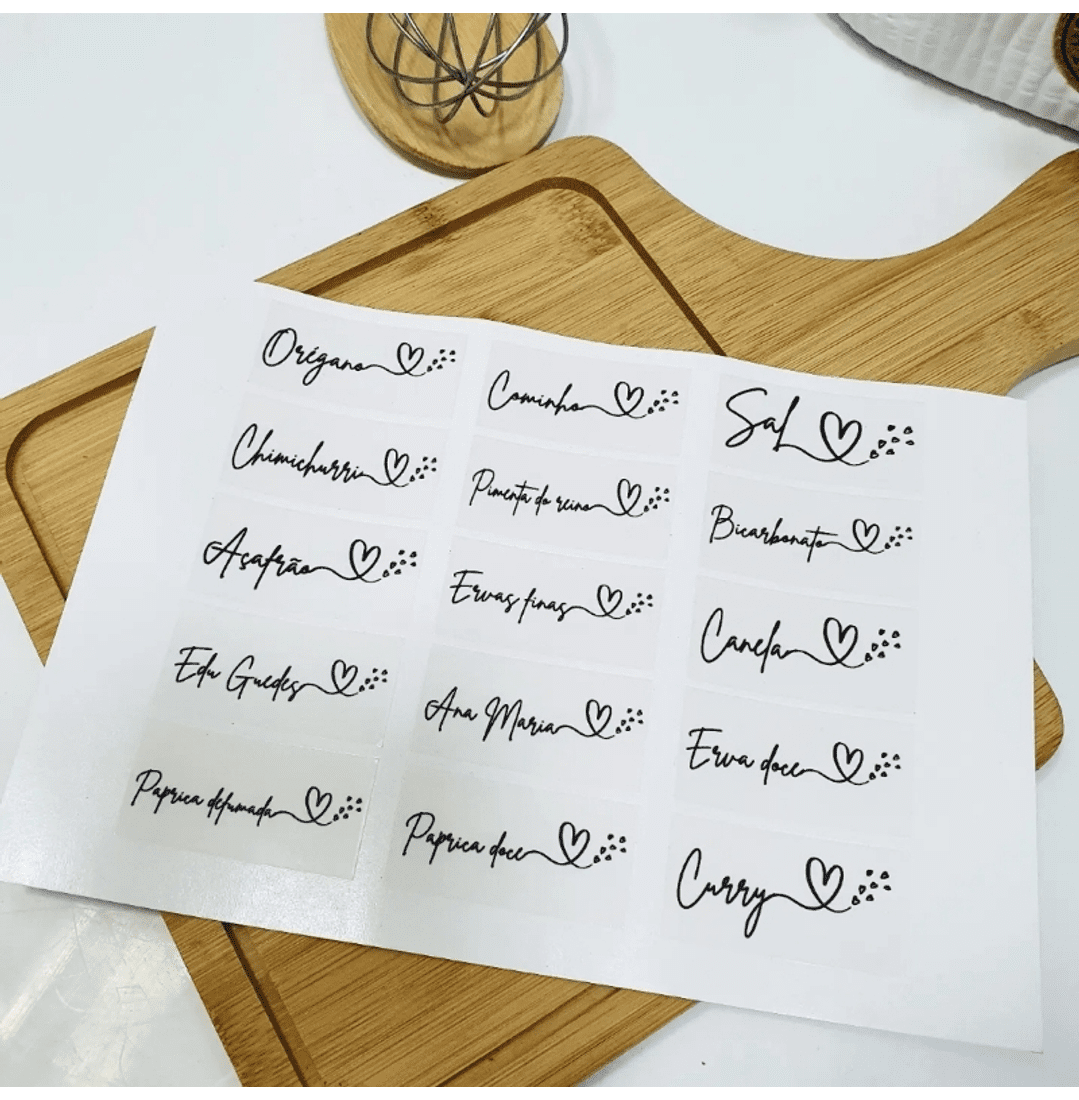 Orégano
Chimichurri
Açafrão
Edu Guedes
Paprica defumada
Cominho
Pimenta do reino
Ervas finas
Ana Maria
Paprica doce
Sal
Bicarbonato
Canela
Erva doce
Curry